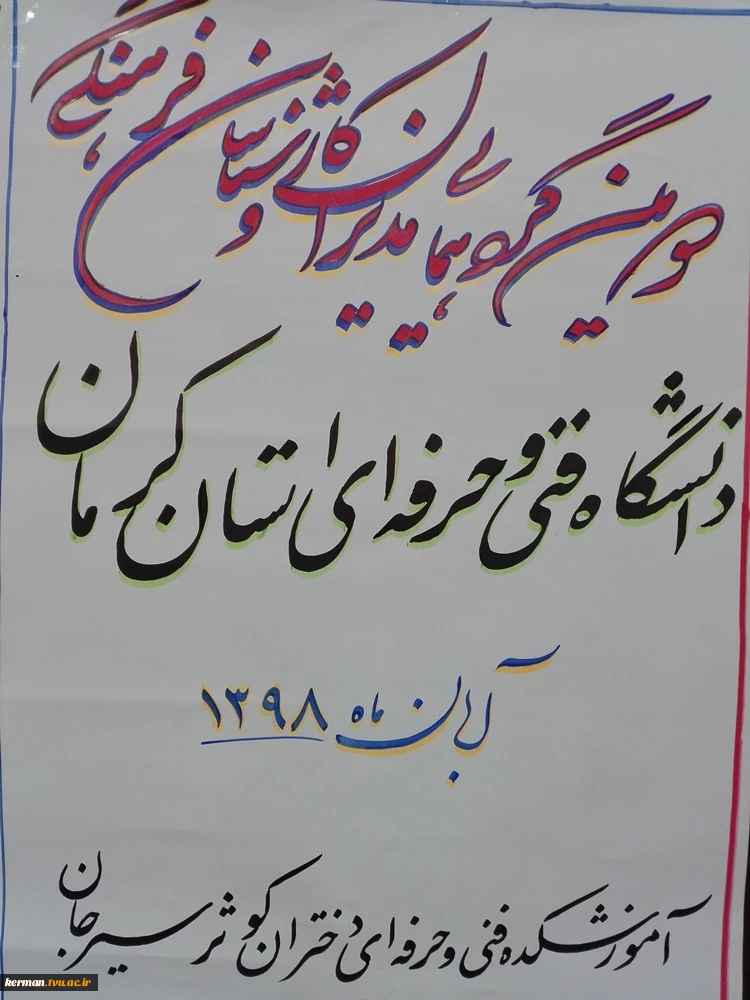 دومین گردهمایی مدیران و کارشناسان فرهنگی
دانشگاه فنی و حرفه ای استان کرمان
آبان ماه ۱۳۹۸
آموزشکده فنی و حرفه ای دختران کوثر سیرجان
kerman.tvu.ac.ir